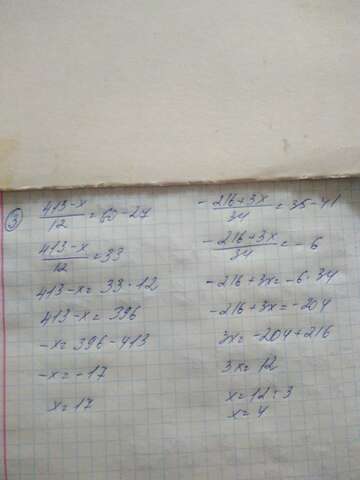 ③
413-x/12 = 60-27
413-x/12 = 33
413-x = 33·12
413-x = 396
-x = 396-413
-x = -17
x = 17
-216+3x/34 = 35-41
-216+3x/34 = -6
-216+3x = -6·34
-216+3x = -204
3x = -204+216
3x = 12
x = 12:3
x = 4